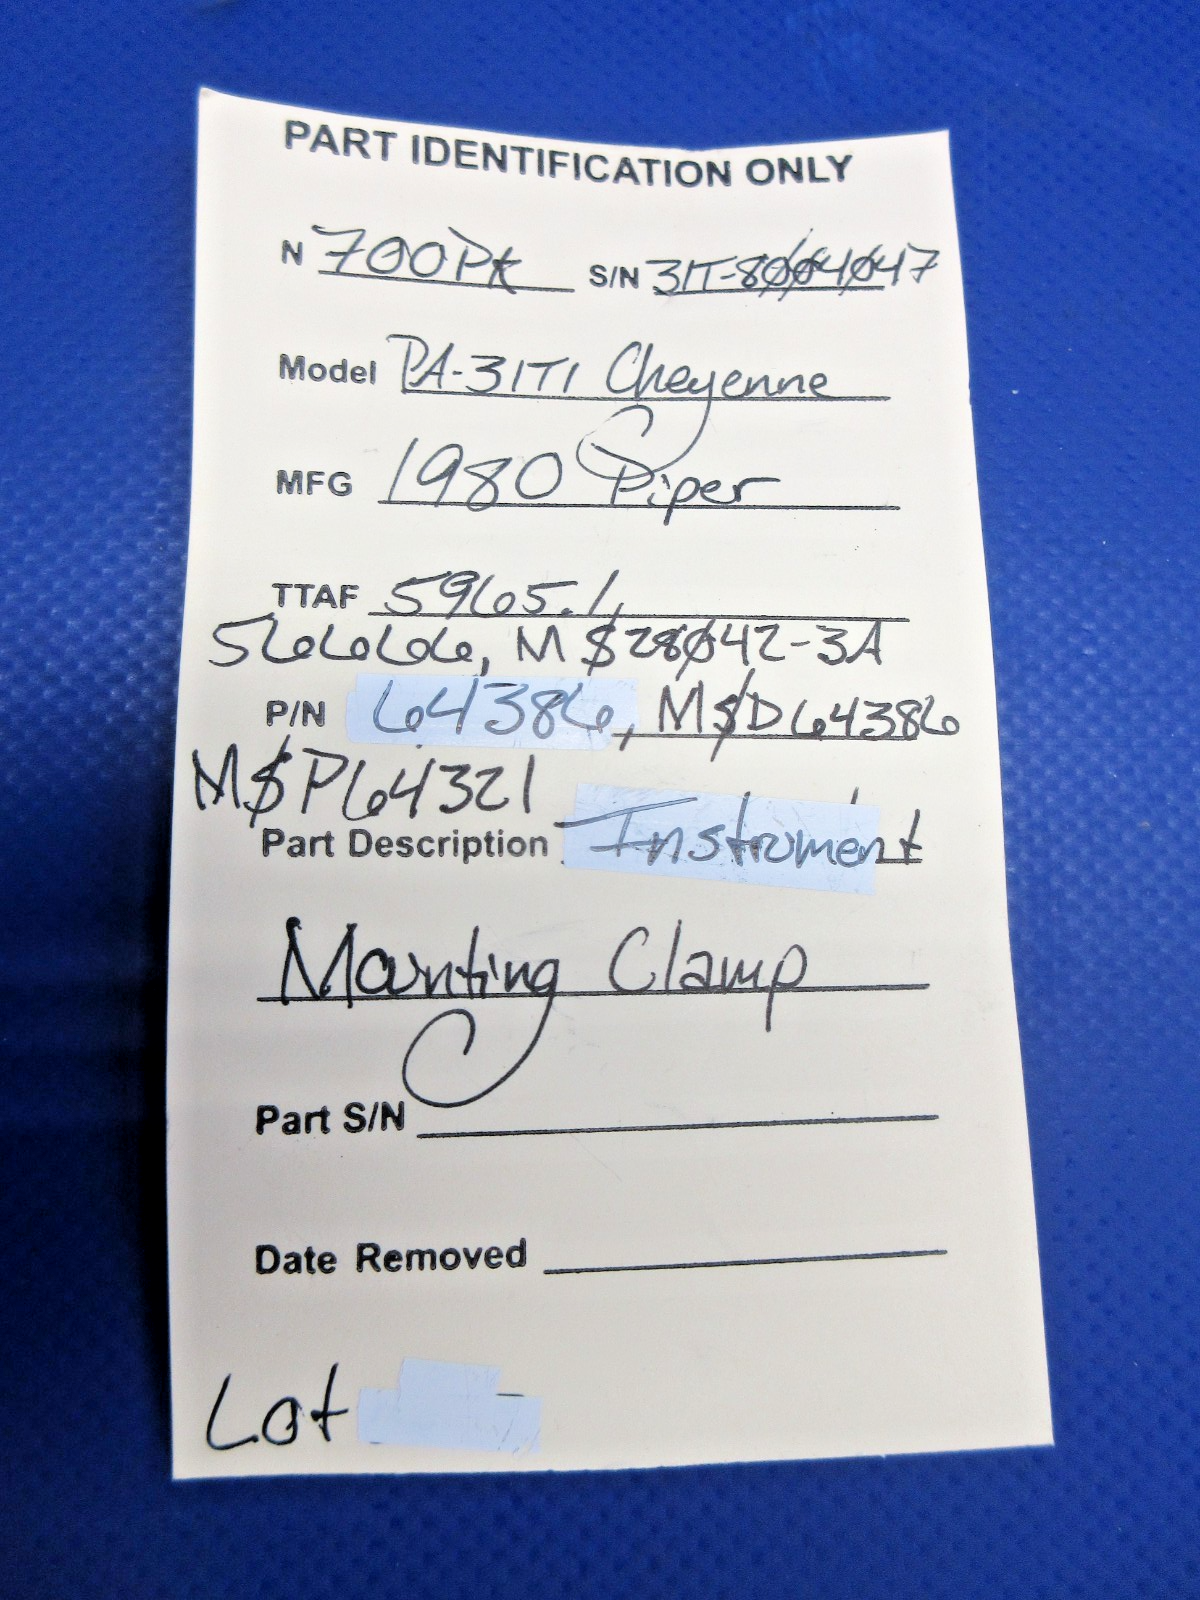 PART IDENTIFICATION ONLY
N 700PK S/N 31T-8004047
Model PA-31T1 Cheyenne
MFG 1980 Piper
TTAF 5965.1
566666, MS28042-3A
P/N 64386, MSD64386
MSP64321
Part Description Instrument
Mounting Clamp
Part S/N
Date Removed
Lot